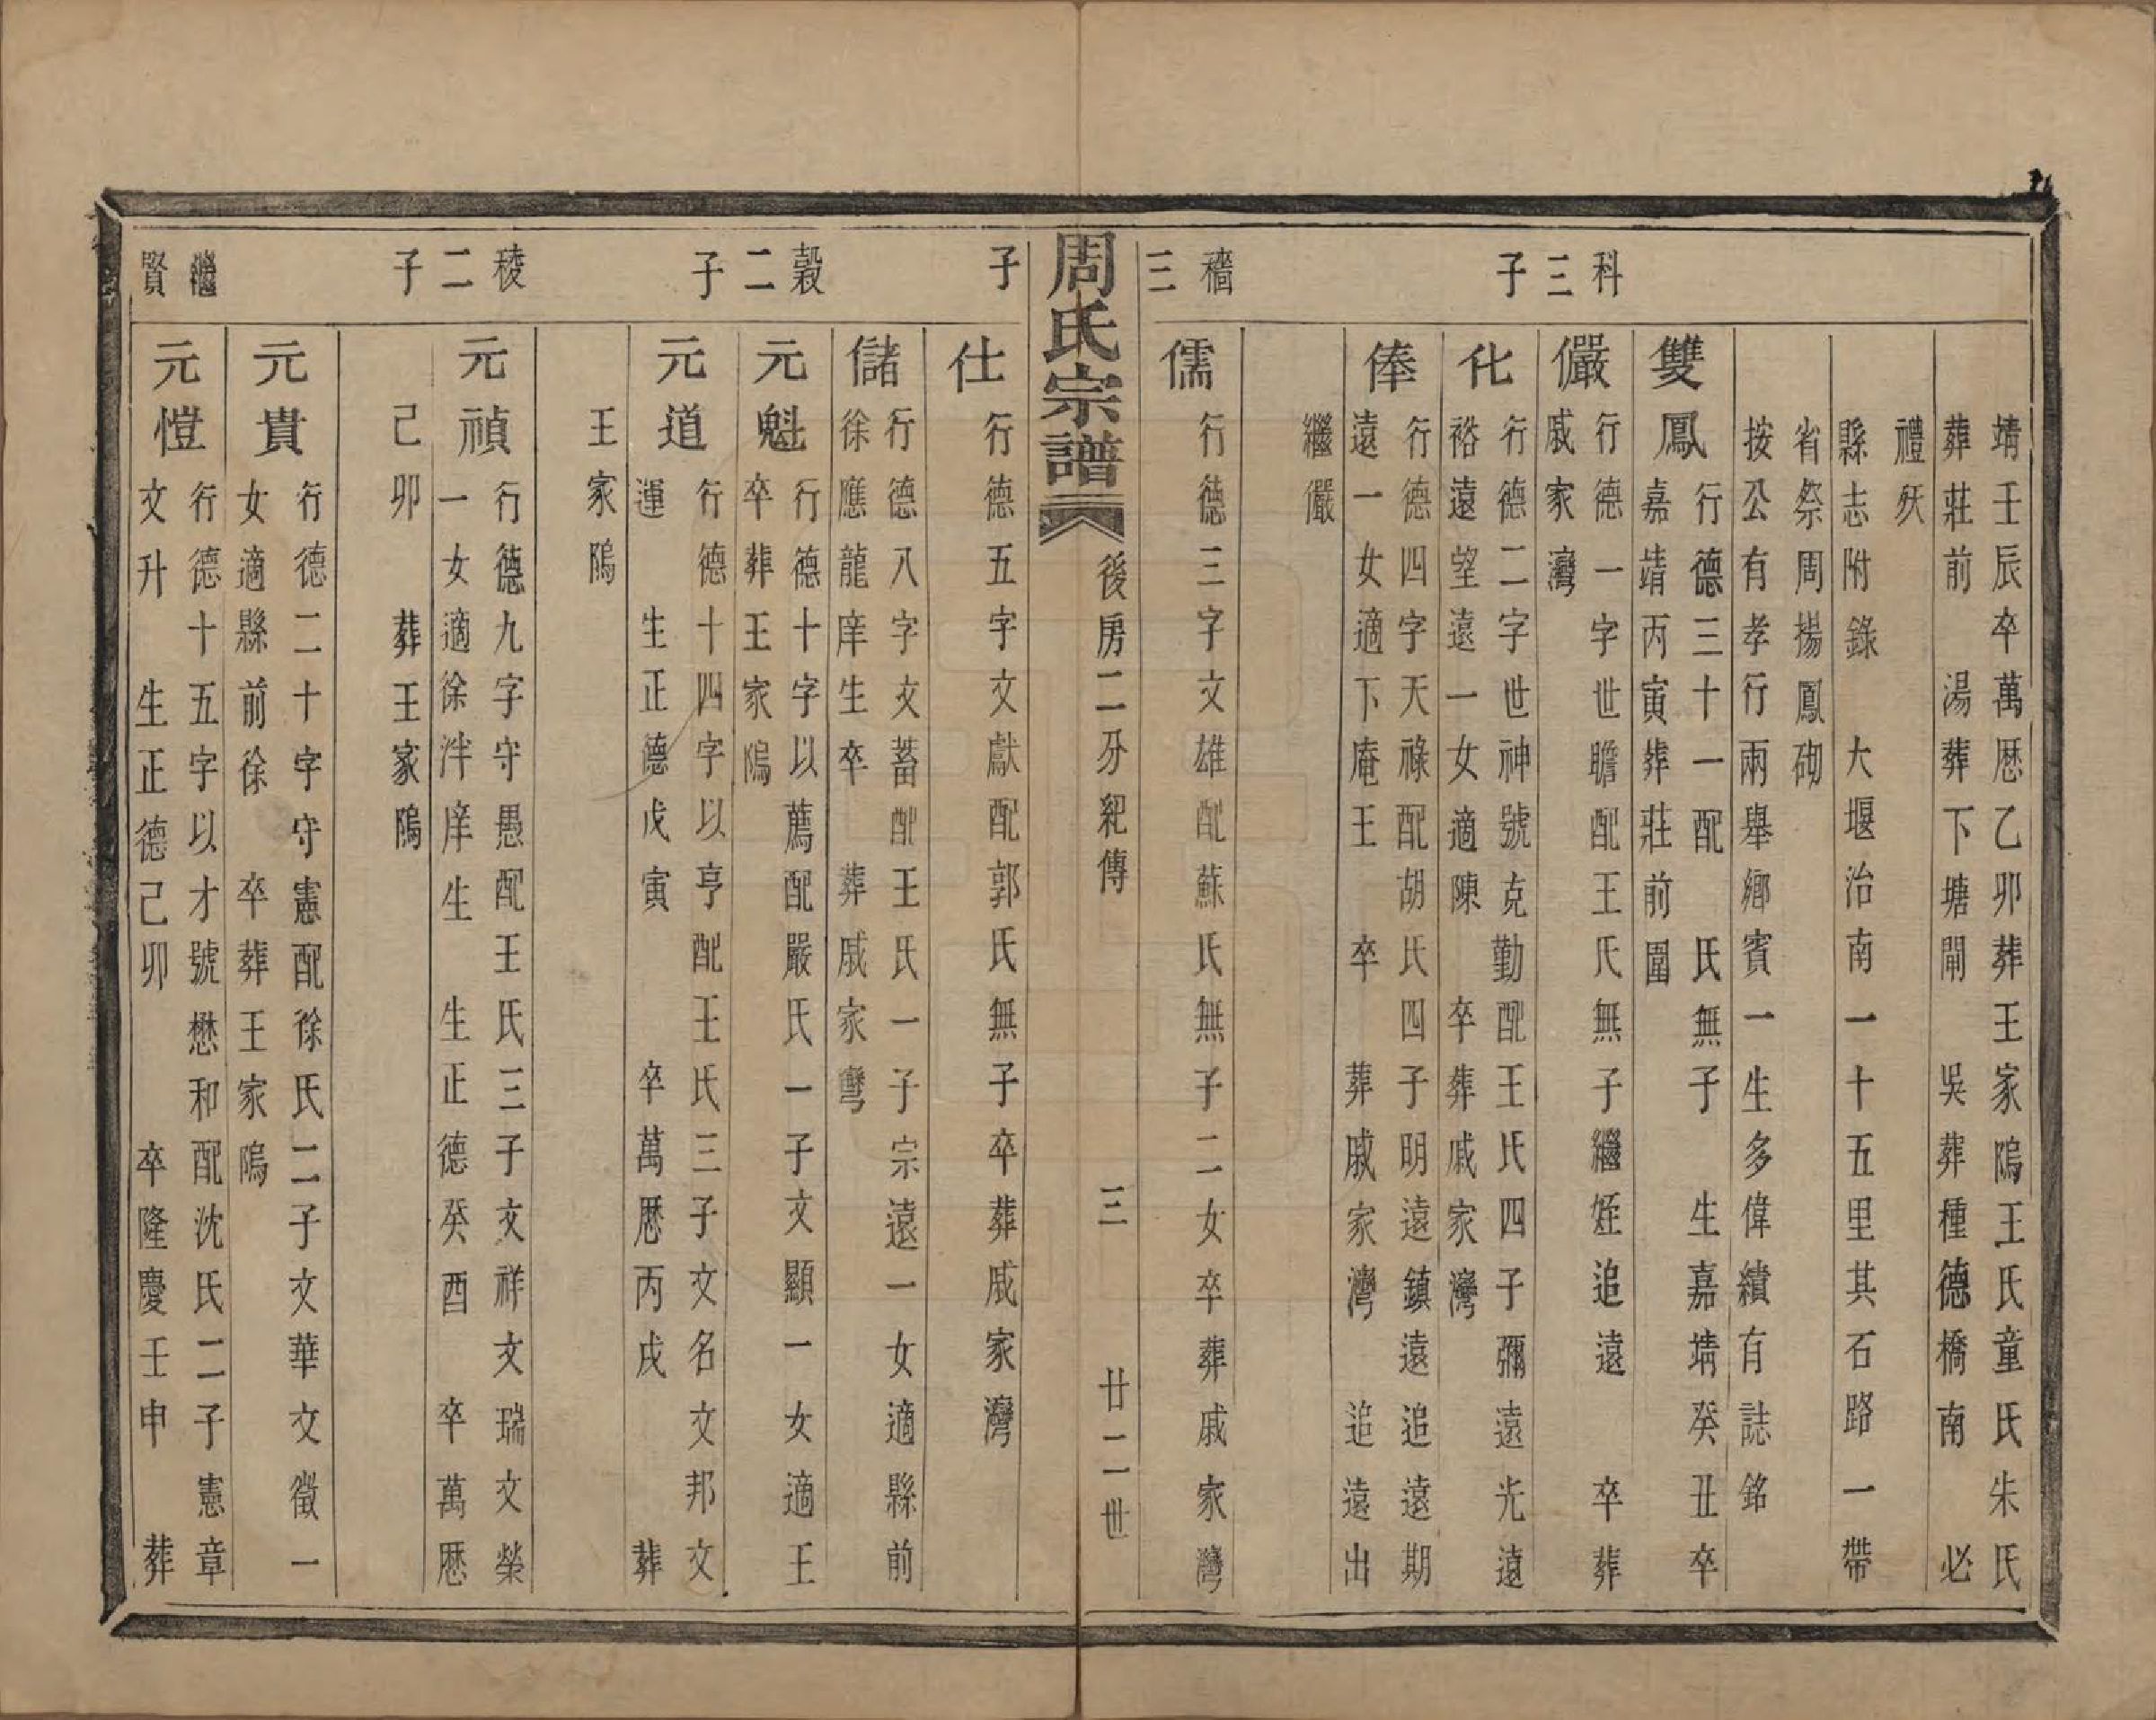 靖壬辰卒萬厯乙卯葬王家隖王氏童氏朱氏
葬莊前 湯葬下塘閘 吳葬種德橋南 必
禮殀
縣志附錄 大堰治南一十五里其石路一帶
省祭周揚鳳砌
按公有孝行兩舉鄉賓一生多偉績有誌銘
科三子
雙鳳
行德三十一配 氏無子 生嘉靖癸丑卒
嘉靖丙寅葬莊前圍
儼
行德一字世瞻配王氏無子繼姪追遠 卒葬
戚家灣
化
行德二字世神號克勤配王氏四子彌遠光遠
裕遠望遠一女適陳 卒葬戚家灣
俸
行德四字天祿配胡氏四子明遠鎮遠追遠期
遠一女適下庵王 卒 葬戚家灣 追遠出
繼儼
穡三
儒
行德三字文雄配蘇氏無子二女卒葬戚家灣
周氏宗譜
後房二分紀傳
三
廿二世
子
仕
行德五字文獻配郭氏無子卒葬戚家灣
儲
行德八字文蓄配王氏一子宗遠一女適縣前
徐應龍庠生卒 葬戚家灣
穀二子
元魁
行德十字以薦配嚴氏一子文顯一女適王
卒葬王家隖
元道
行德十四字以亨配王氏三子文名文邦文
運 生正德戊寅 卒萬厯丙戌 葬
王家隖
稜二子
元禎
行德九字守愚配王氏三子文祥文瑞文榮
一女適徐泮庠生 生正德癸酉 卒萬厯
己卯 葬王家隖
元貴
行德二十字守憲配徐氏二子文華文徵一
女適縣前徐 卒葬王家隖
繼賢
元愷
行德十五字以才號懋和配沈氏二子憲章
文升 生正德己卯 卒隆慶壬申 葬